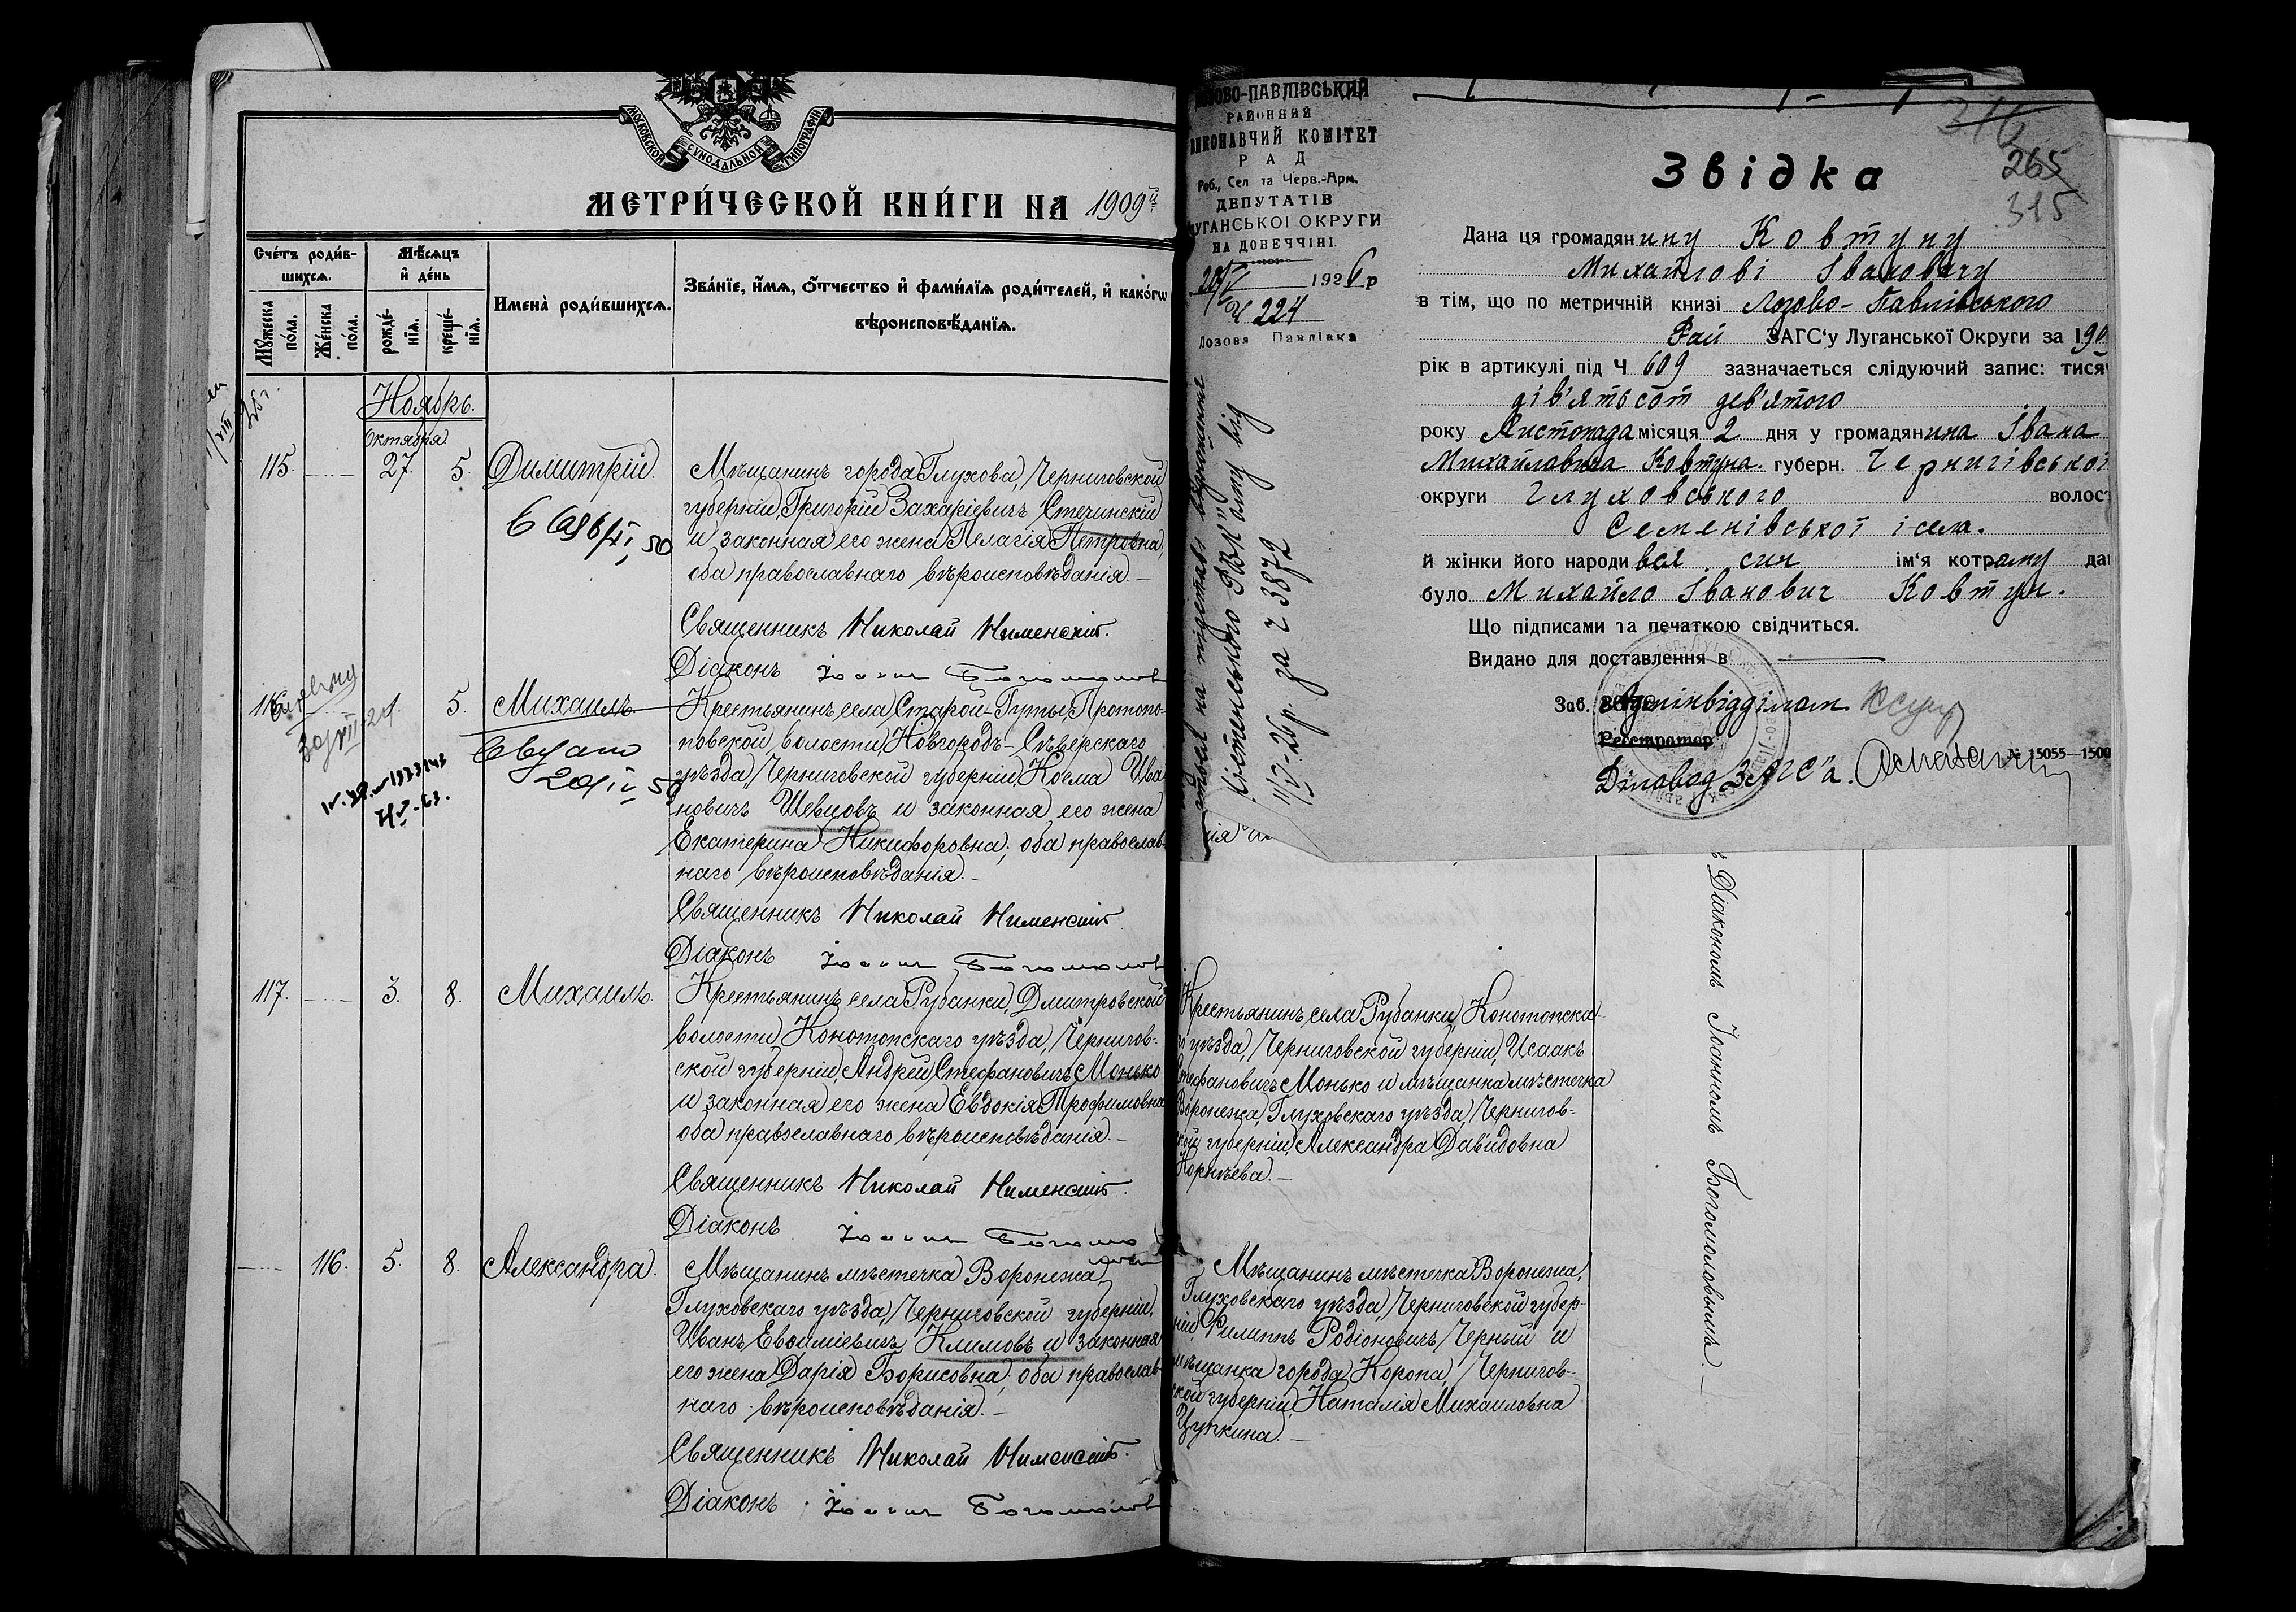 МОСКОВСКОЙ СѴНОДАЛЬНОЙ ТИПОГРАФІИ.
МЕТРИ́ЧЕСКОЙ КНИ́ГИ НА 1909й
Сче́тъ роди́в-
шихся.
Мѣ́сяцъ
и҆ де́нь
Мꙋ́жеска
по́ла.
Же́нска
по́ла.
рожде́-
нїя.
креще́-
нїя.
Имена̀ роди́вшихся.
Зва́нїе, и҆́мя, ѻ҆́тчество и҆ фами́лїя роди́телей, и҆ како́гѡ
вѣроисповѣ́данїя.
Ноябрь.
Октября
115. 27. 5. Димитрій.
Мѣщанинъ города Глухова, Черниговской
губерніи, Григорій Захаріевичъ Стечинскій
и законная его жена Пелагія Петровна,
оба православнаго вѣроисповѣданія.—
Священникъ Николай Именскій.
Діаконъ Іоаннъ Богомолов
116. 5. Михаилъ.
Крестьянинъ села Старой-Гуты, Протопо-
повской волости, Новгородъ-Сѣверскаго
уѣзда, Черниговской губерніи, Косма Ива
новичъ Шевцовъ и законная его жена
Екатерина Никифоровна; оба православ-
наго вѣроисповѣданія.—
Священникъ Николай Именскій
Діаконъ Іоаннъ Богомолов
117. 3. 8. Михаилъ.
Крестьянинъ села Рубанки, Дмитровской
волости, Конотопскаго уѣзда, Чернигов-
ской губерніи, Андрей Стефановичъ Монько
и законная его жена Евдокія Трофимовна
оба православнаго вѣроисповѣданія.—
Священникъ Николай Именскій.
Діаконъ Іоаннъ Богомо
116. 5. 8. Александра.
Мѣщанинъ мѣстечка Воронежа,
Глуховскаго уѣзда, Черниговской губерніи,
Иванъ Евфиміевичъ Климовъ и законная
его жена Дарія Борисовна; оба православ-
наго вѣроисповѣданія.—
Священникъ Николай Именскій.
Діаконъ Іоаннъ Богомолов
ОВО-ПАВЛІВСЬКИЙ
РАЙОННИЙ
ИКОНАВЧИЙ КОМІТЕТ
РАД
Роб., Сел та Черв.-Арм.
ДЕПУТАТІВ
УГАНСЬКОІ ОКРУГИ
НА ДОНЕЧЧІНІ.
1926 р
Ч 224
Лозовя Павлівка
265
315
Звідка
Дана ця громадянину Ковтуну
Михайлові Івановичу
в тім, що по метричній книзі Лозово-Павлівського
Рай ЗАГС'у Луганської Округи за 190
рік в артикулі під Ч 609 зазначаеться слідуючий запис: тися
дівятьсот девятого
року Листопада місяця 2 дня у громадянина Івана
Михайлавича Ковтуна. губерн. Чернигівської
округи Глуховського волост
Семенівської і села.
й жінки його народивея син ім'я котрому да
було Михайло Іванович Ковтун.
Що підписами та печаткою свідчиться.
Видано для доставлення в
Заб. Адмінвідділам
Реєстратор
Діловод ЗАГС'а.
№ 15055—1500
за ч 3872
Крестьянинъ села Рубанки, Конотопска-
го уѣзда, Черниговской губерніи, Исаакъ
Стефановичъ Монько и мѣщанка мѣстечка
Воронежа, Глуховскаго уѣзда, Чернигов-
ской губерніи, Александра Давидовна
Корнѣева.—
Мѣщанинъ мѣстечка Воронежа,
Глуховскаго уѣзда, Черниговской губер-
ніи, Филиппъ Родіоновичъ Черный и
мѣщанка города Коропа, Чернигов-
ской губерніи, Наталія Михаиловна
Цупкина.—
ъ Діакономъ Іоанномъ Богомоловымъ.—